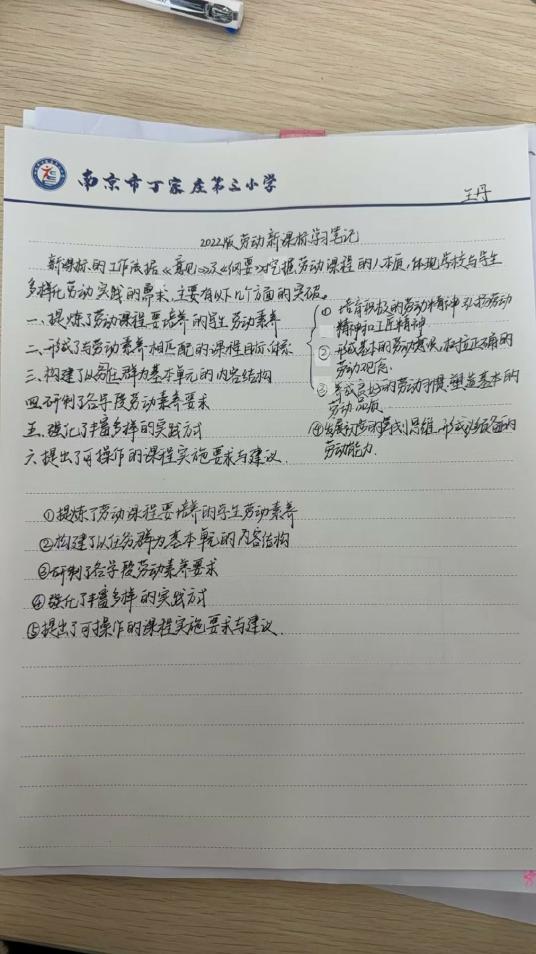 南京市丁家庄第三小学
王丹
2022版劳动新课标学习笔记
新课标的工作依据《意见》及《纲要》挖掘劳动课程的本质,体现学校与学生
多样化劳动实践的需求,主要有以下几个方面的突破。
一、提炼了劳动课程要培养的学生劳动素养
二、形成了与劳动素养相匹配的课程目标体系
三、构建了以任务群为基本单元的内容结构
四、研制了各学段劳动素养要求
五、强化了丰富多样的实践方式
六、提出了可操作的课程实施要求与建议.
① 培育积极的劳动精神,弘扬劳动
精神和工匠精神
② 形成基本的劳动意识,树立正确的
劳动观念.
③ 养成良好的劳动习惯,塑造基本的
劳动品质
④发展初步的筹划思维,形成必须备的
劳动能力.
①提炼了劳动课程要培养的学生劳动素养
②构建了以任务群为基本单元的内容结构
③研制了各学段劳动素养要求
④强化了丰富多样的实践方式
⑤提出了可操作的课程实施要求与建议.